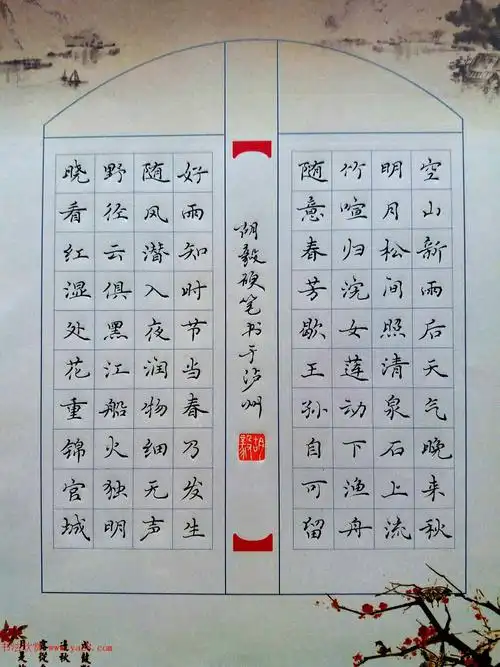 空山新雨后天气晚来秋
明月松间照清泉石上流
竹喧归浣女莲动下渔舟
随意春芳歇王孙自可留
胡毅硬笔书于泸州
胡毅
好雨知时节当春乃发生
随风潜入夜润物细无声
野径云俱黑江船火独明
晓看红湿处花重锦官城